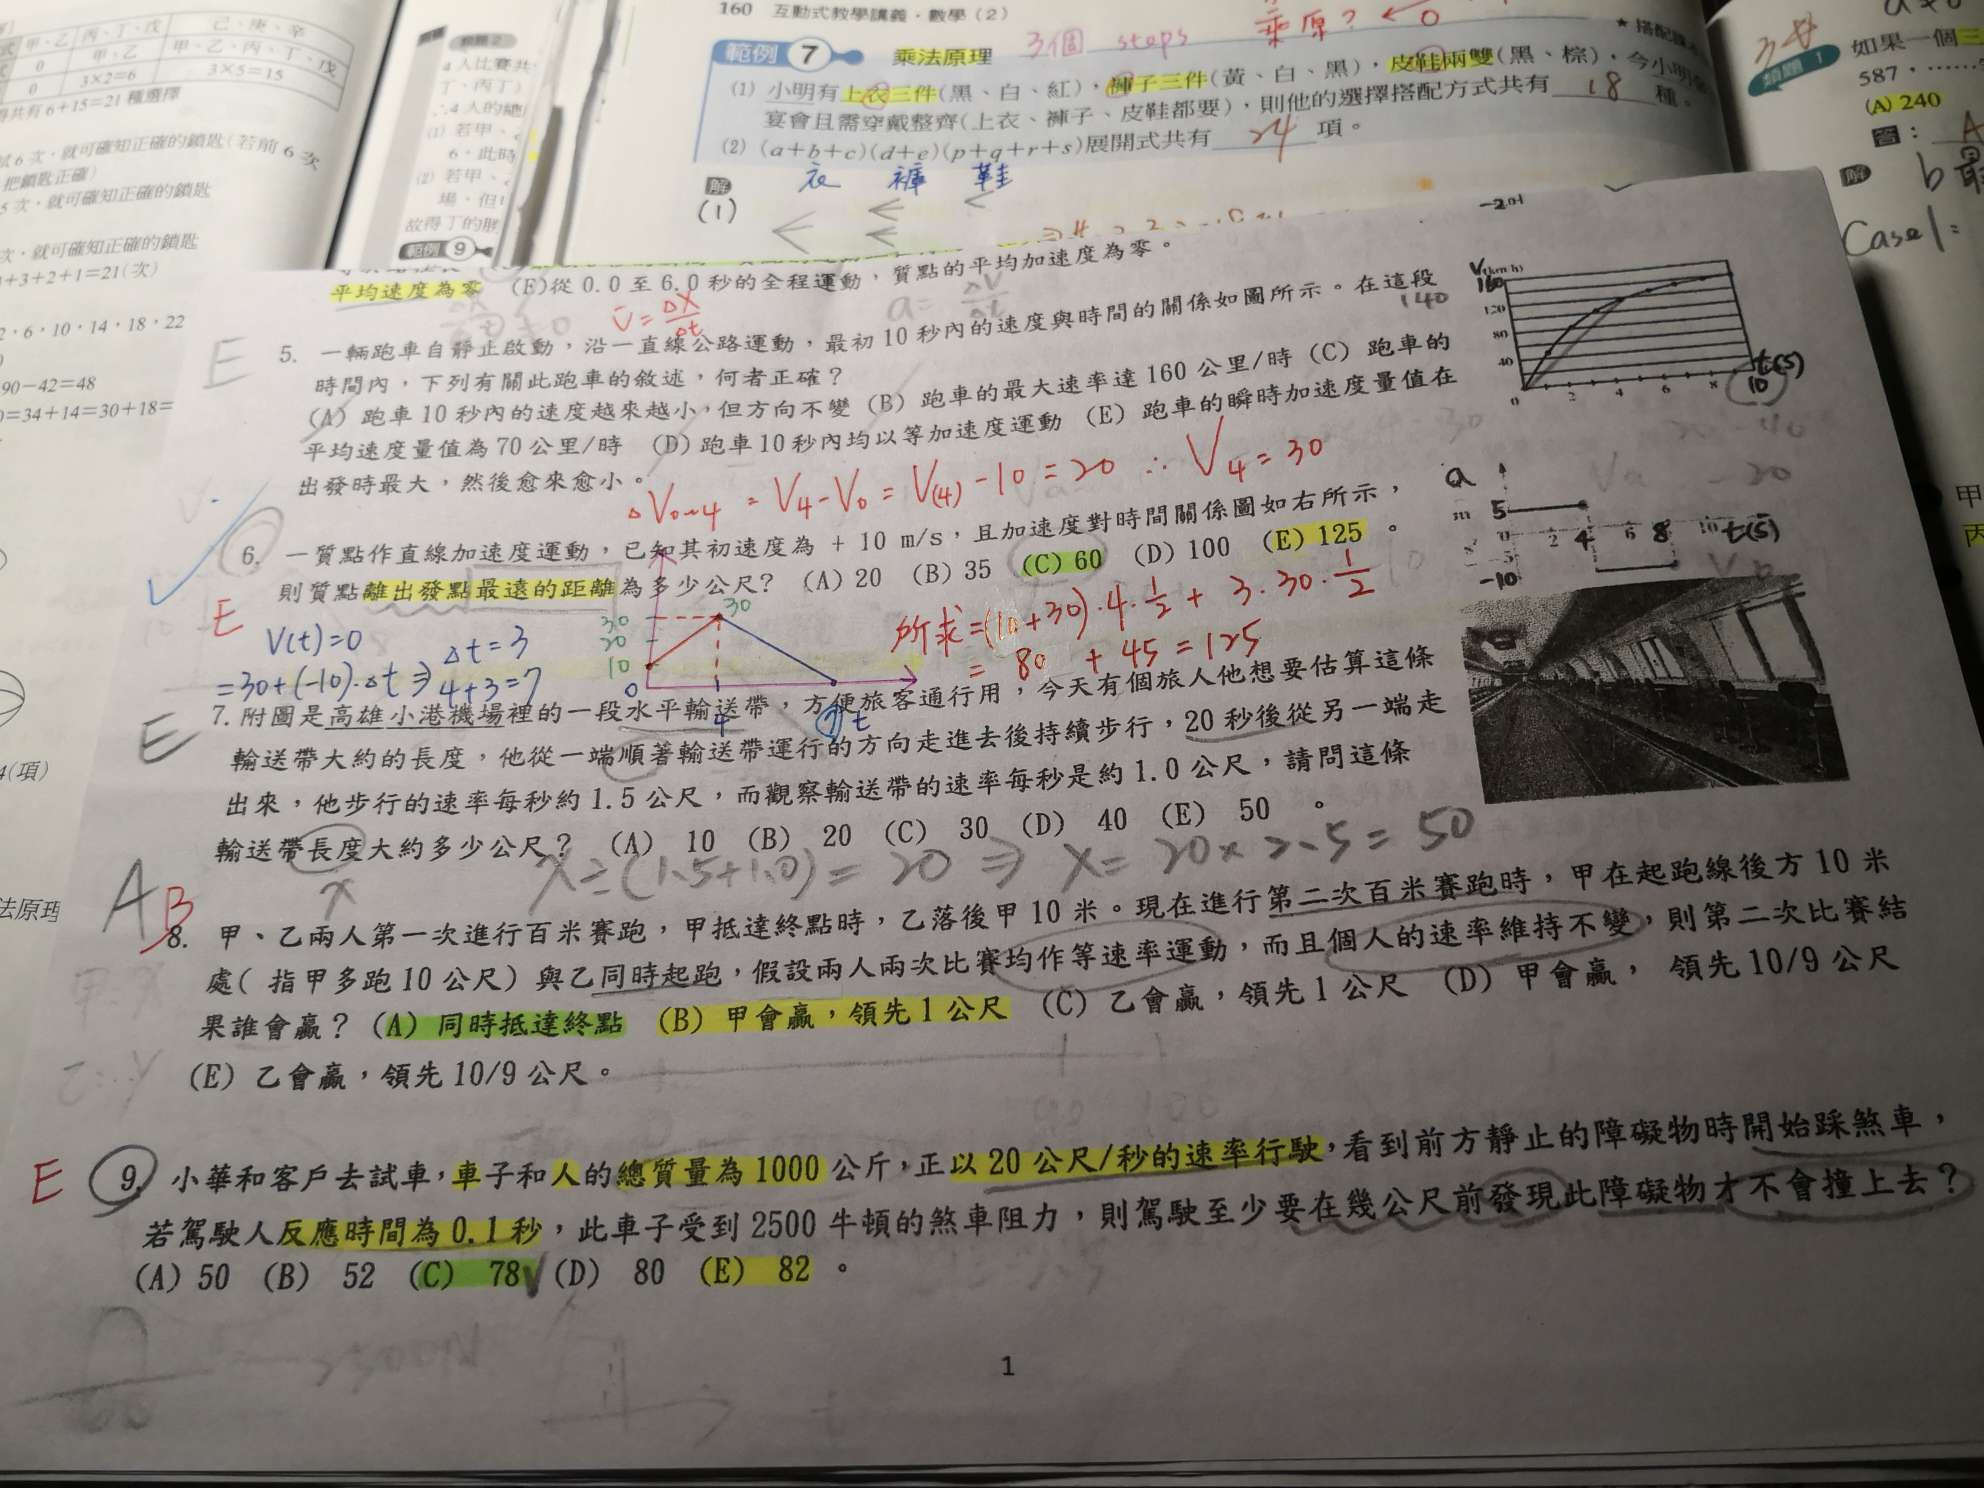 160 互動式教學講義・數學(2)
範例 7 乘法原理 3個 steps 乘原?
(1) 小明有上衣三件(黑、白、紅),褲子三件(黃、白、黑),皮鞋兩雙(黑、棕),今小明
宴會且需穿戴整齊(上衣、褲子、皮鞋都要),則他的選擇搭配方式共有 18 種。
(2) (a+b+c)(d+e)(p+q+r+s)展開式共有 24 項。
解 衣 褲 鞋
(1)
甲、乙 丙、丁、戊 己、庚、辛
0 甲、乙 甲、乙、丙、丁、戊
0 3×2=6 3×5=15
共有6+15=21種選擇
試6次,就可確知正確的鎖匙(若前6次
把鎖匙正確)
5次,就可確知正確的鎖匙
次,就可確知正確的鎖匙
+3+2+1=21(次)
2,6,10,14,18,22
90-42=48
0=34+14=30+18=
4(項)
法原理
4人比賽共
丁、丙丁)
∴4人的總
(1) 若甲、
6,此時
(2) 若甲、
場,但
故得丁的勝
範例 9
類題 1 如果一個三
587,……
(A) 240
答: A
解 b最
Case1:
甲
丙
平均速度為零 (E)從 0.0 至 6.0 秒的全程運動,質點的平均加速度為零。
V̄=ΔX/Δt a=ΔV/Δt
E 5. 一輛跑車自靜止啟動,沿一直線公路運動,最初 10 秒內的速度與時間的關係如圖所示。在這段
140
時間內,下列有關此跑車的敘述,何者正確?
(A) 跑車 10 秒內的速度越來越小,但方向不變 (B) 跑車的最大速率達 160 公里/時 (C) 跑車的
平均速度量值為 70 公里/時 (D) 跑車 10 秒內均以等加速度運動 (E) 跑車的瞬時加速度量值在
出發時最大,然後愈來愈小。
V(km/h)
160
120
80
40
0 2 4 6 8 10 t(s)
ΔV0~4 = V4-V0 = V(4)-10=20 ∴ V4=30
6. 一質點作直線加速度運動,已知其初速度為 + 10 m/s,且加速度對時間關係圖如右所示,
則質點離出發點最遠的距離為多少公尺? (A) 20 (B) 35 (C) 60 (D) 100 (E) 125 。
a
5
0 2 4 6 8 10 t(s)
-5
-10
E V(t)=0
=30+(-10)·Δt ⇒ Δt=3
4+3=7
30
20
10
0 4 7 t
30
所求=(10+30)·4·1/2 + 3·30·1/2
= 80 + 45 = 125
E 7. 附圖是高雄小港機場裡的一段水平輸送帶,方便旅客通行用,今天有個旅人他想要估算這條
輸送帶大約的長度,他從一端順著輸送帶運行的方向走進去後持續步行,20 秒後從另一端走
出來,他步行的速率每秒約 1.5 公尺,而觀察輸送帶的速率每秒是約 1.0 公尺,請問這條
輸送帶長度大約多少公尺? (A) 10 (B) 20 (C) 30 (D) 40 (E) 50 。
x x÷(1.5+1.0)=20 ⇒ x=20×2.5=50
A B 8. 甲、乙兩人第一次進行百米賽跑,甲抵達終點時,乙落後甲 10 米。現在進行第二次百米賽跑時,甲在起跑線後方 10 米
處( 指甲多跑 10 公尺) 與乙同時起跑,假設兩人兩次比賽均作等速率運動,而且個人的速率維持不變,則第二次比賽結
果誰會贏? (A) 同時抵達終點 (B) 甲會贏,領先 1 公尺 (C) 乙會贏,領先 1 公尺 (D) 甲會贏, 領先 10/9 公尺
(E) 乙會贏,領先 10/9 公尺。
E 9. 小華和客戶去試車,車子和人的總質量為 1000 公斤,正以 20 公尺/秒的速率行駛,看到前方靜止的障礙物時開始踩煞車,
若駕駛人反應時間為 0.1 秒,此車子受到 2500 牛頓的煞車阻力,則駕駛至少要在幾公尺前發現此障礙物才不會撞上去?
(A) 50 (B) 52 (C) 78 (D) 80 (E) 82 。
1